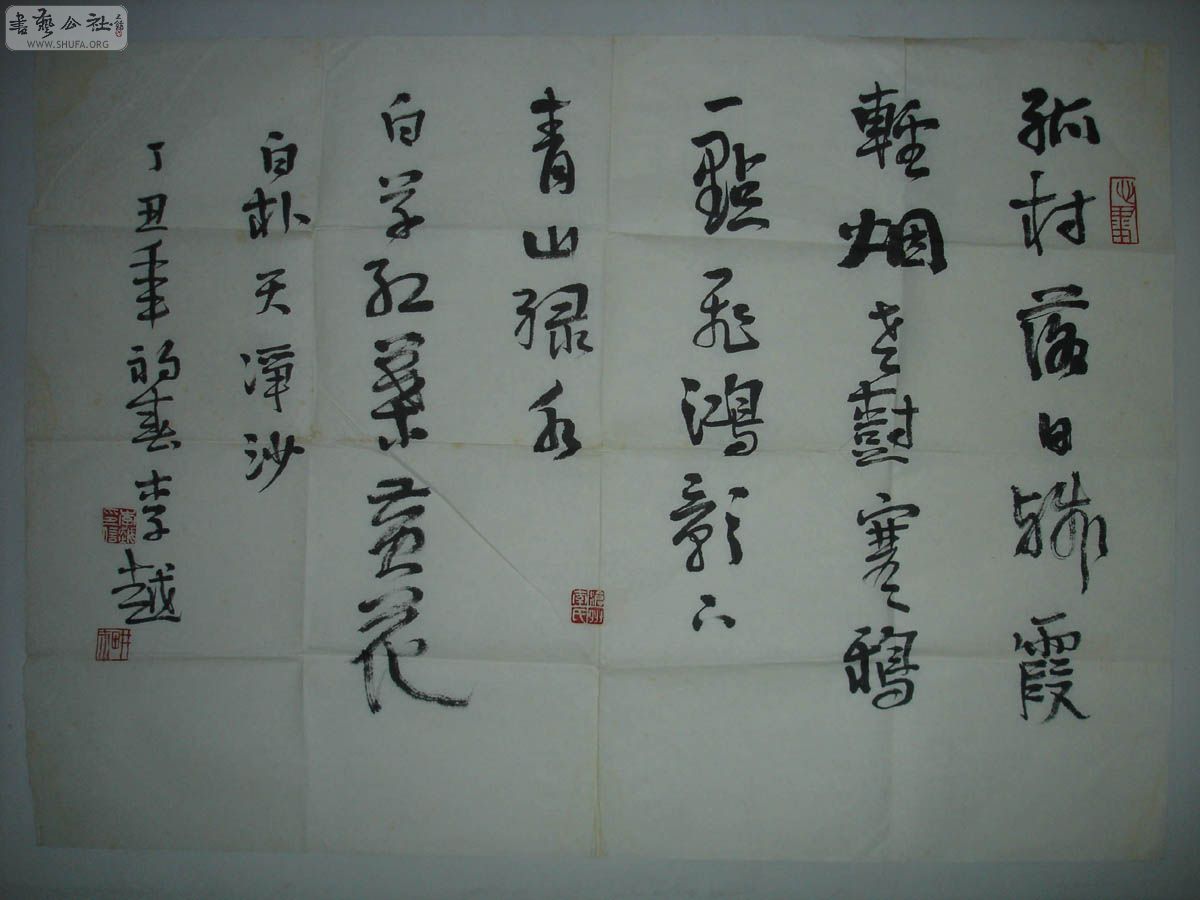 書藝公社
WWW.SHUFA.ORG
孤村落日殘霞
輕烟老樹寒鴉
一點飛鴻影下
青山綠水
白草紅葉黃花
白朴天淨沙
丁丑年初春李越